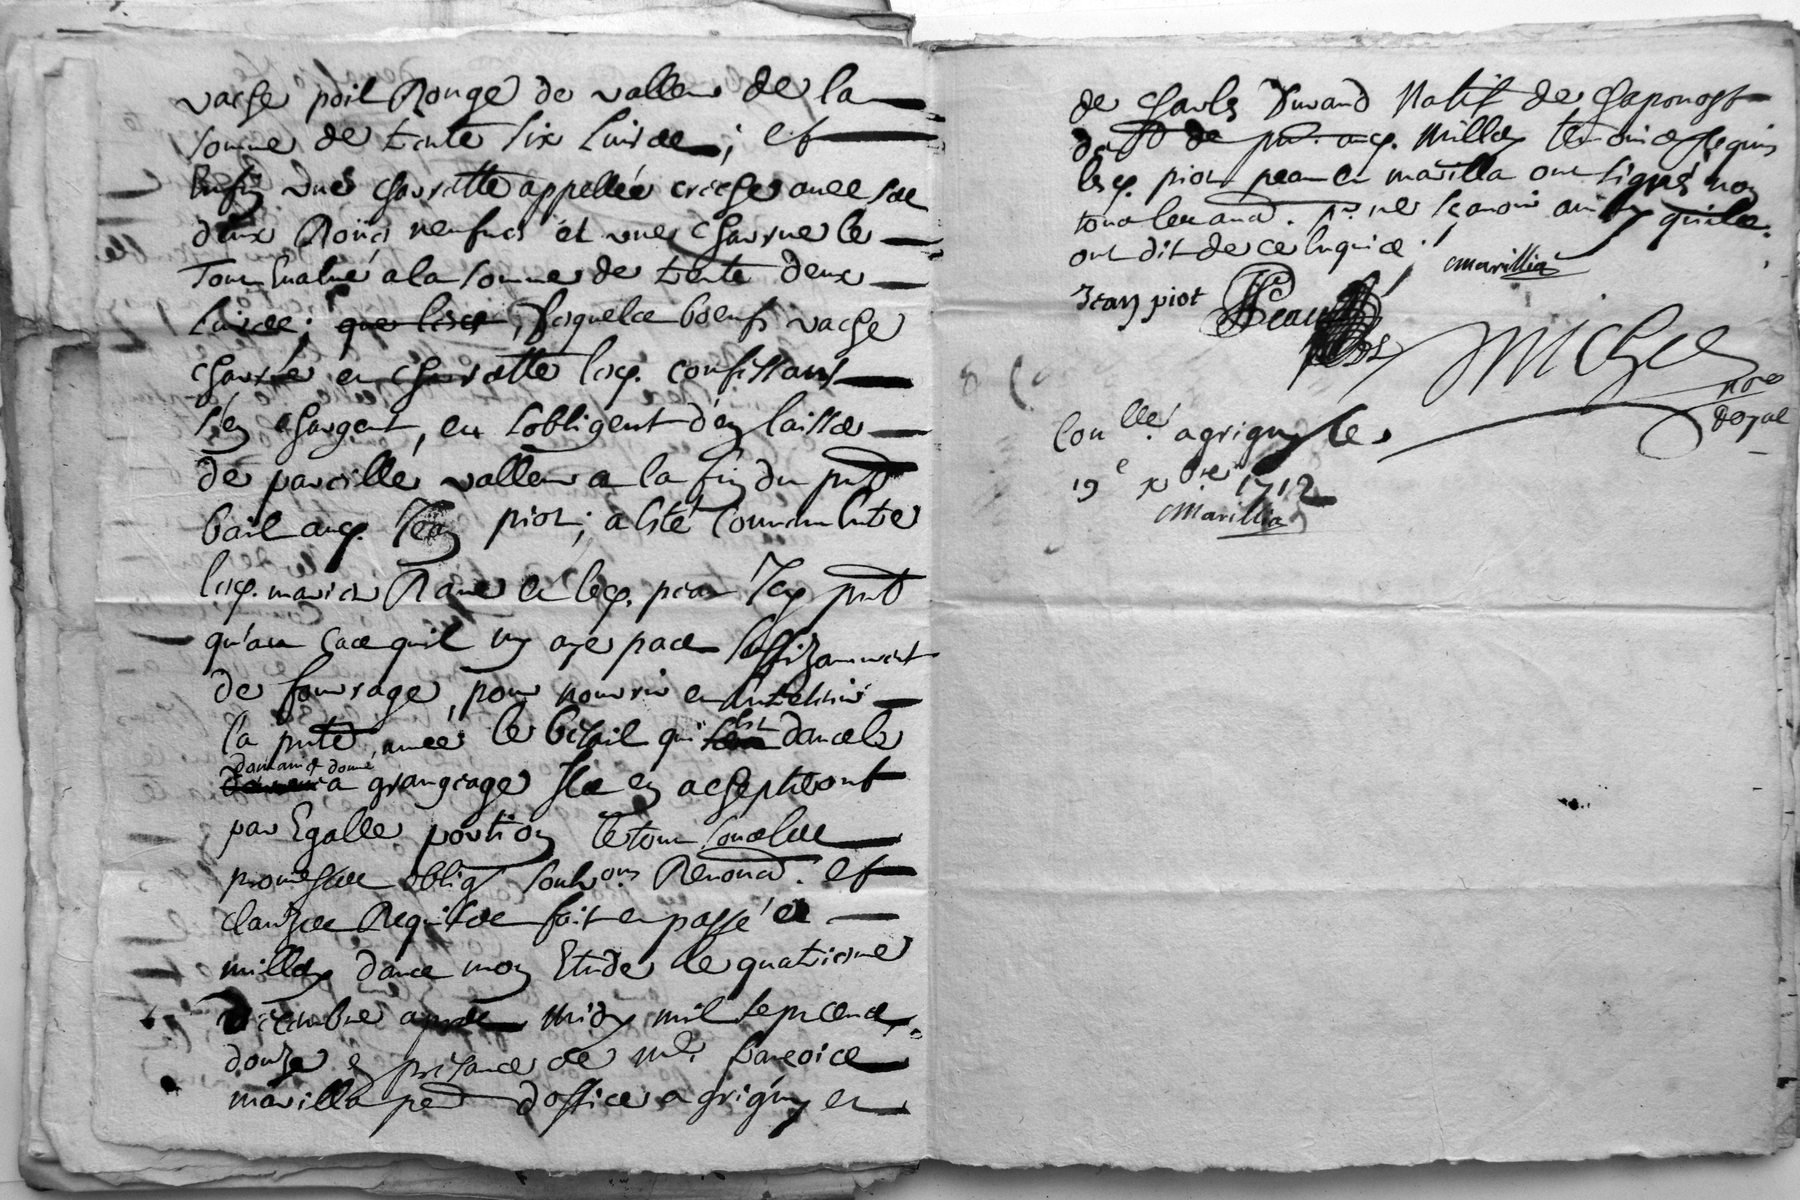 vache poil Rouge de valleur de la
somme de trente six livres ; et
Enfin une charrette appellée creche avec ses
deux Roües neufves et une charrue le
tout Evalué a la somme de trente deux
Livres ; que lesd , lesquelles bœufs vache
charrüe et charrette lesd. confessant
s'en chargent, et sobligent d'en laisser
de pareille valleur a la fin du pnt
bail aud. Jean piot ; a esté convenu Entre
lesd. mariés et led. piot Icy pnt
qu'au cas quil ny aye pas suffizamment
de fourrage, pour nourrir et Entretenir
la pnte année le bestail qui est dans le
domaine donné
a grangeage Ils en achepteront
par Egalle portion le tout soubs les
promesses oblig soub.ons Renond. et
clauzes Requises fait et passé a
millery dans mon Etude le quatrieme
decembre apres midy mil sept cent
douze en presance de me. françois
marillia d'office a grigny et
de charles Durand Natif de chaponost
dud millery temoins requis
lesd. piot et marillia ont signé non
pr. ne sçavoir ainsy quils
ont dit de ce Enquis ./.
marillia
Jean piot
Michel
nore
Royal
Conllé a grigny le
19e xbre 1712
Marillia